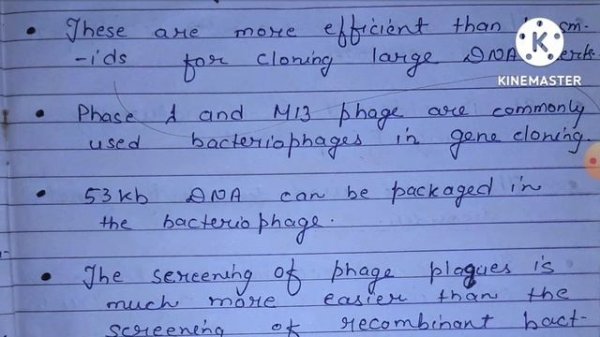 These are more efficient than
-ids for cloning large DNA
KINEMASTER
Phase λ and M13 phage are commonly
used bacteriophages in gene cloning.
53kb DNA can be packaged in
the bacteriophage.
The screening of phage plaques is
much more easier than the
screening of recombinant bact-